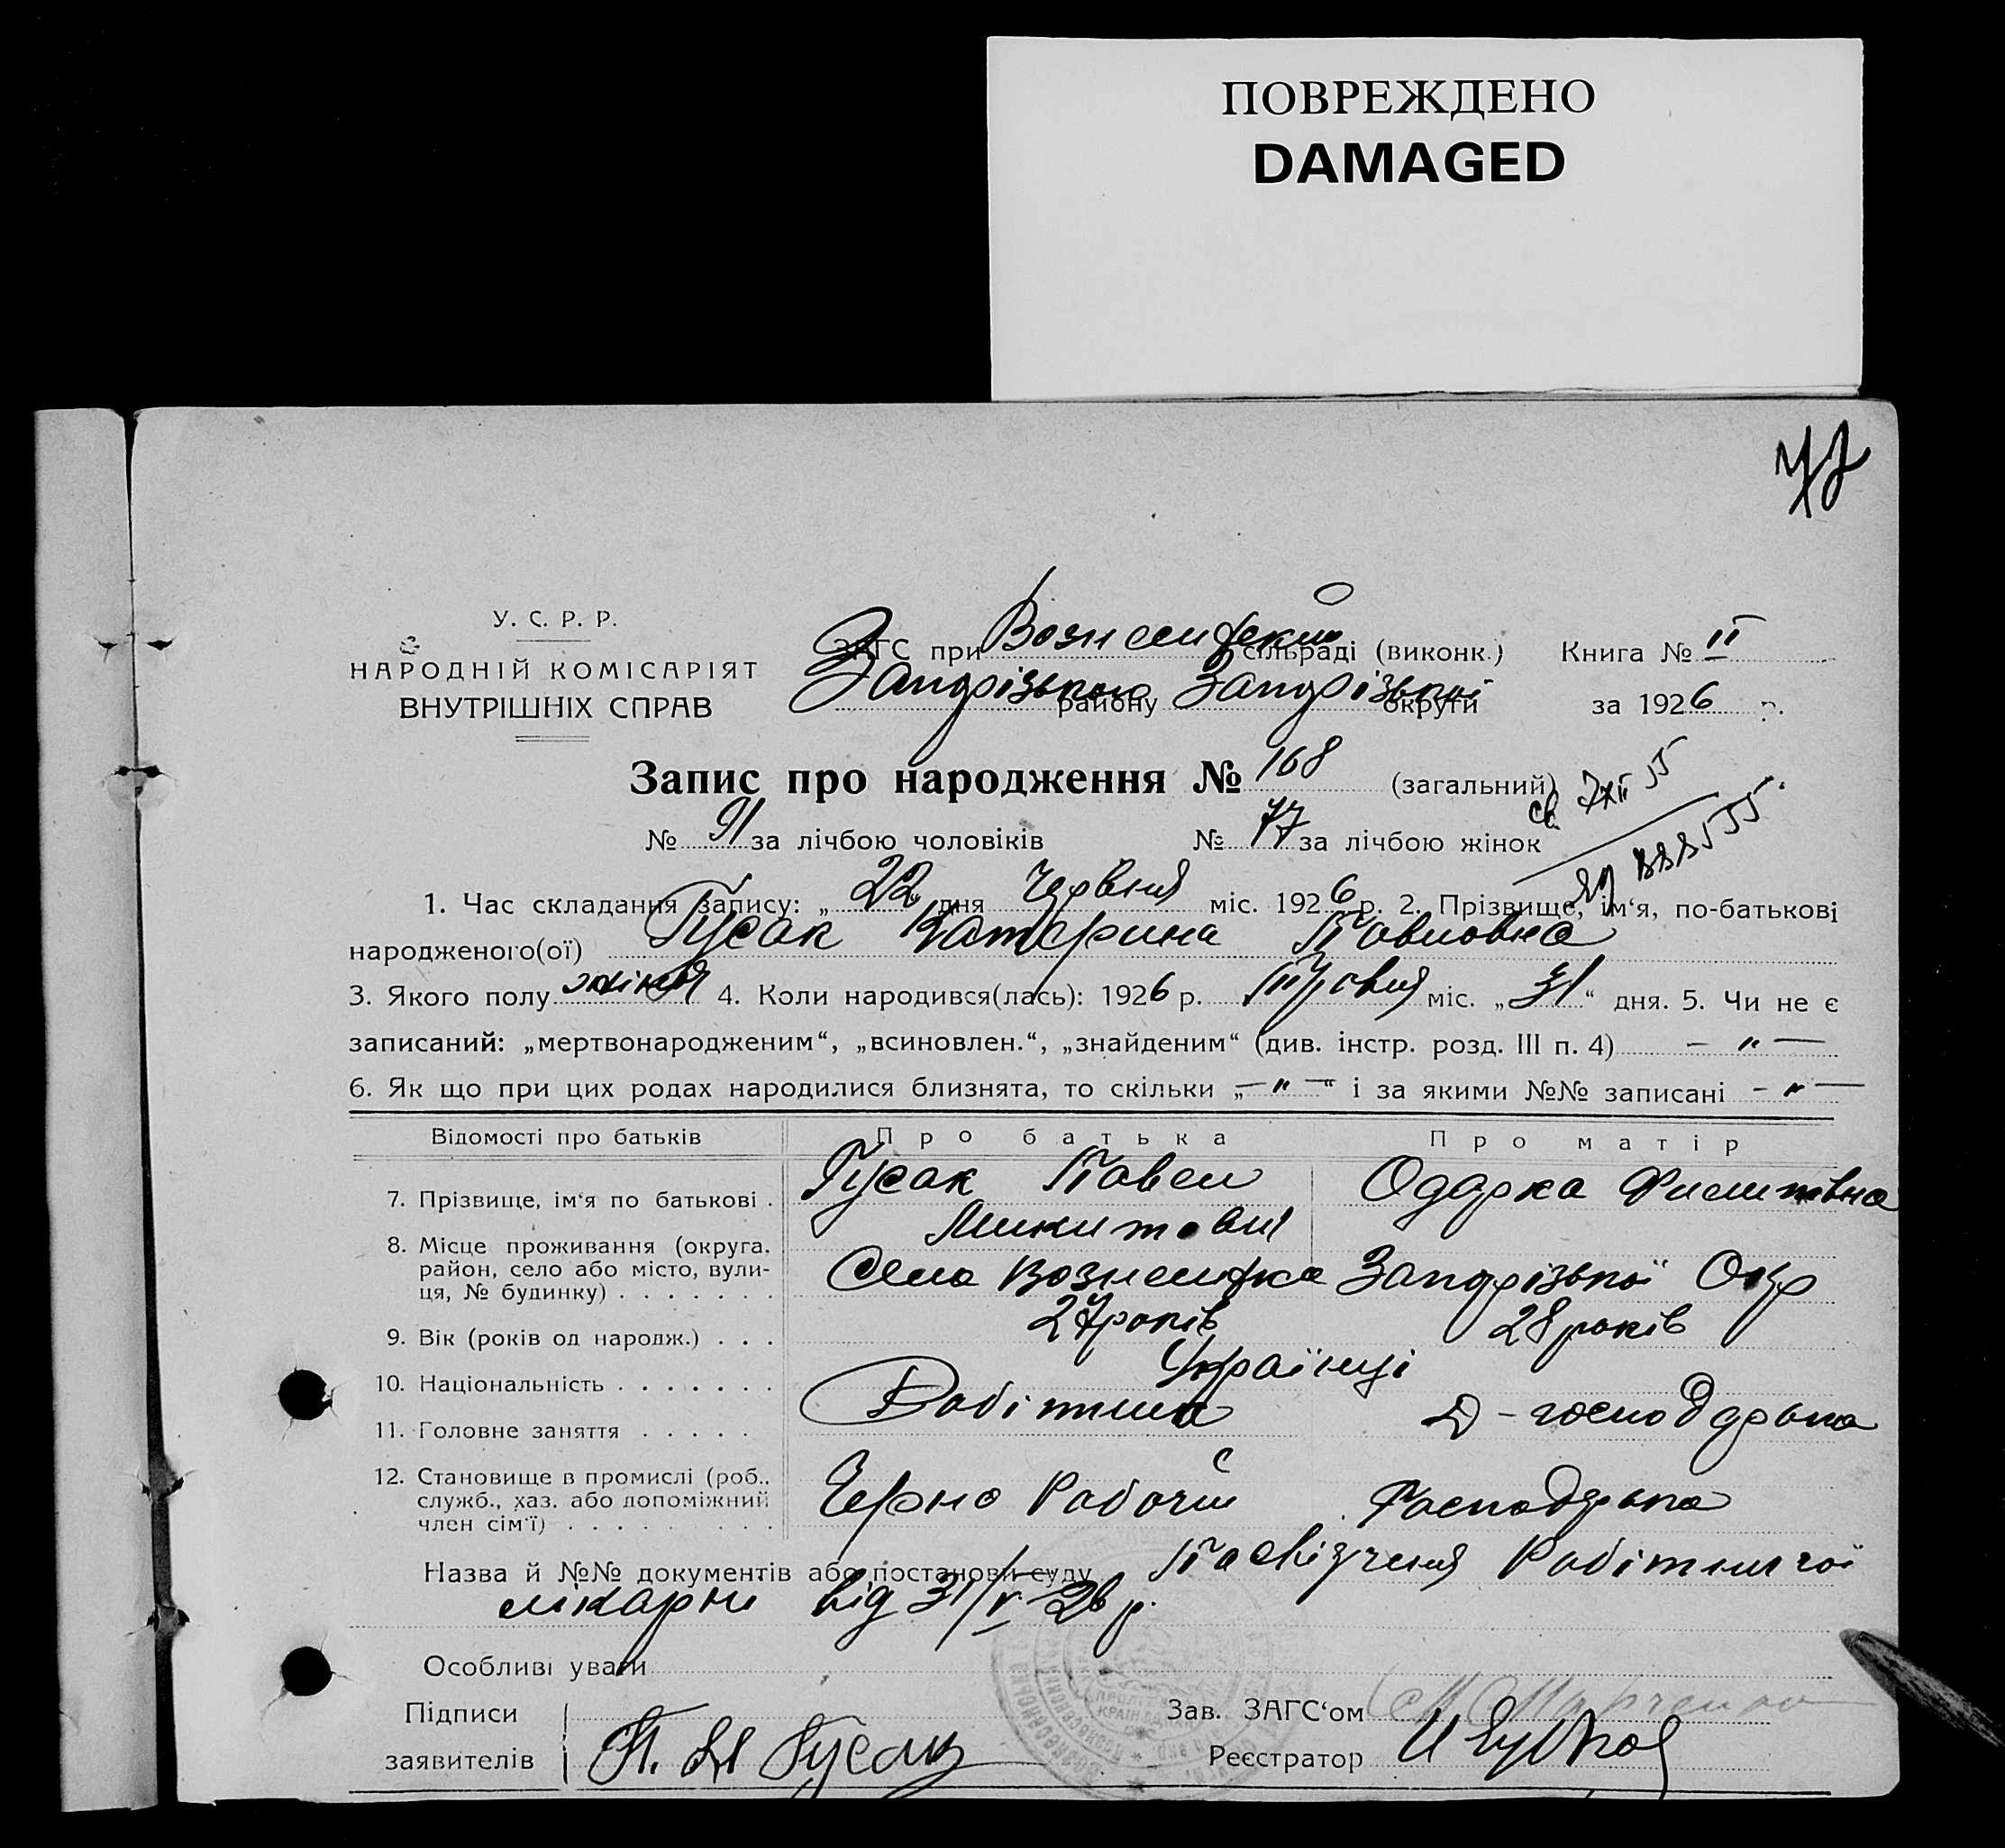 ПОВРЕЖДЕНО
DAMAGED
77
У. С. Р. Р.
НАРОДНІЙ КОМІСАРІЯТ
ВНУТРІШНІХ СПРАВ
ЗАГС при Вознесенській сільраді (виконк.) Книга № II
Запорізького району Запорізької округи за 1926 р.
Запис про народження № 168 (загальний)
№ 91 за лічбою чоловіків № 77 за лічбою жінок
1. Час складання запису: „ 22 " дня червня міс. 1926 р. 2. Прізвище, ім‘я, по-батькові
народженого(ої) Гусак Катерина Павловна
3. Якого полу жіноч 4. Коли народився(лась): 1926 р. травня міс. „ 31 “ дня. 5. Чи не є
записаний: „мертвонародженим“, „всиновлен.“, „знайденим“ (див. інстр. розд. III п. 4) — „ —
6. Як що при цих родах народилися близнята, то скільки „— „ —“ і за якими №№ записані — „ —
Відомості про батьків Про батька Про матір
7. Прізвище, ім‘я по батькові . Гусак Павел Одарка Филипівна
Микитович
8. Місце проживання (округа, район, село або місто, вулиця, № будинку) . . . . . . . Село Вознесенка Запорізької Окр
9. Вік (років од народж.) . . . 27 років 28 років
10. Національність . . . . . . . Українці
11. Головне заняття . . . . . Робітник Д-господарка
12. Становище в промислі (роб., служб., хаз. або допоміжний член сім‘ї) . . . . . . . Черно Рабочий Господарка
Назва й №№ документів або постанови суду Посвідчення Робітничої
лікарні від 31/V-26 р.
Особливі уваги
Підписи
заявителів П. Н Гусак
Зав. ЗАГС‘ом
Реєстратор